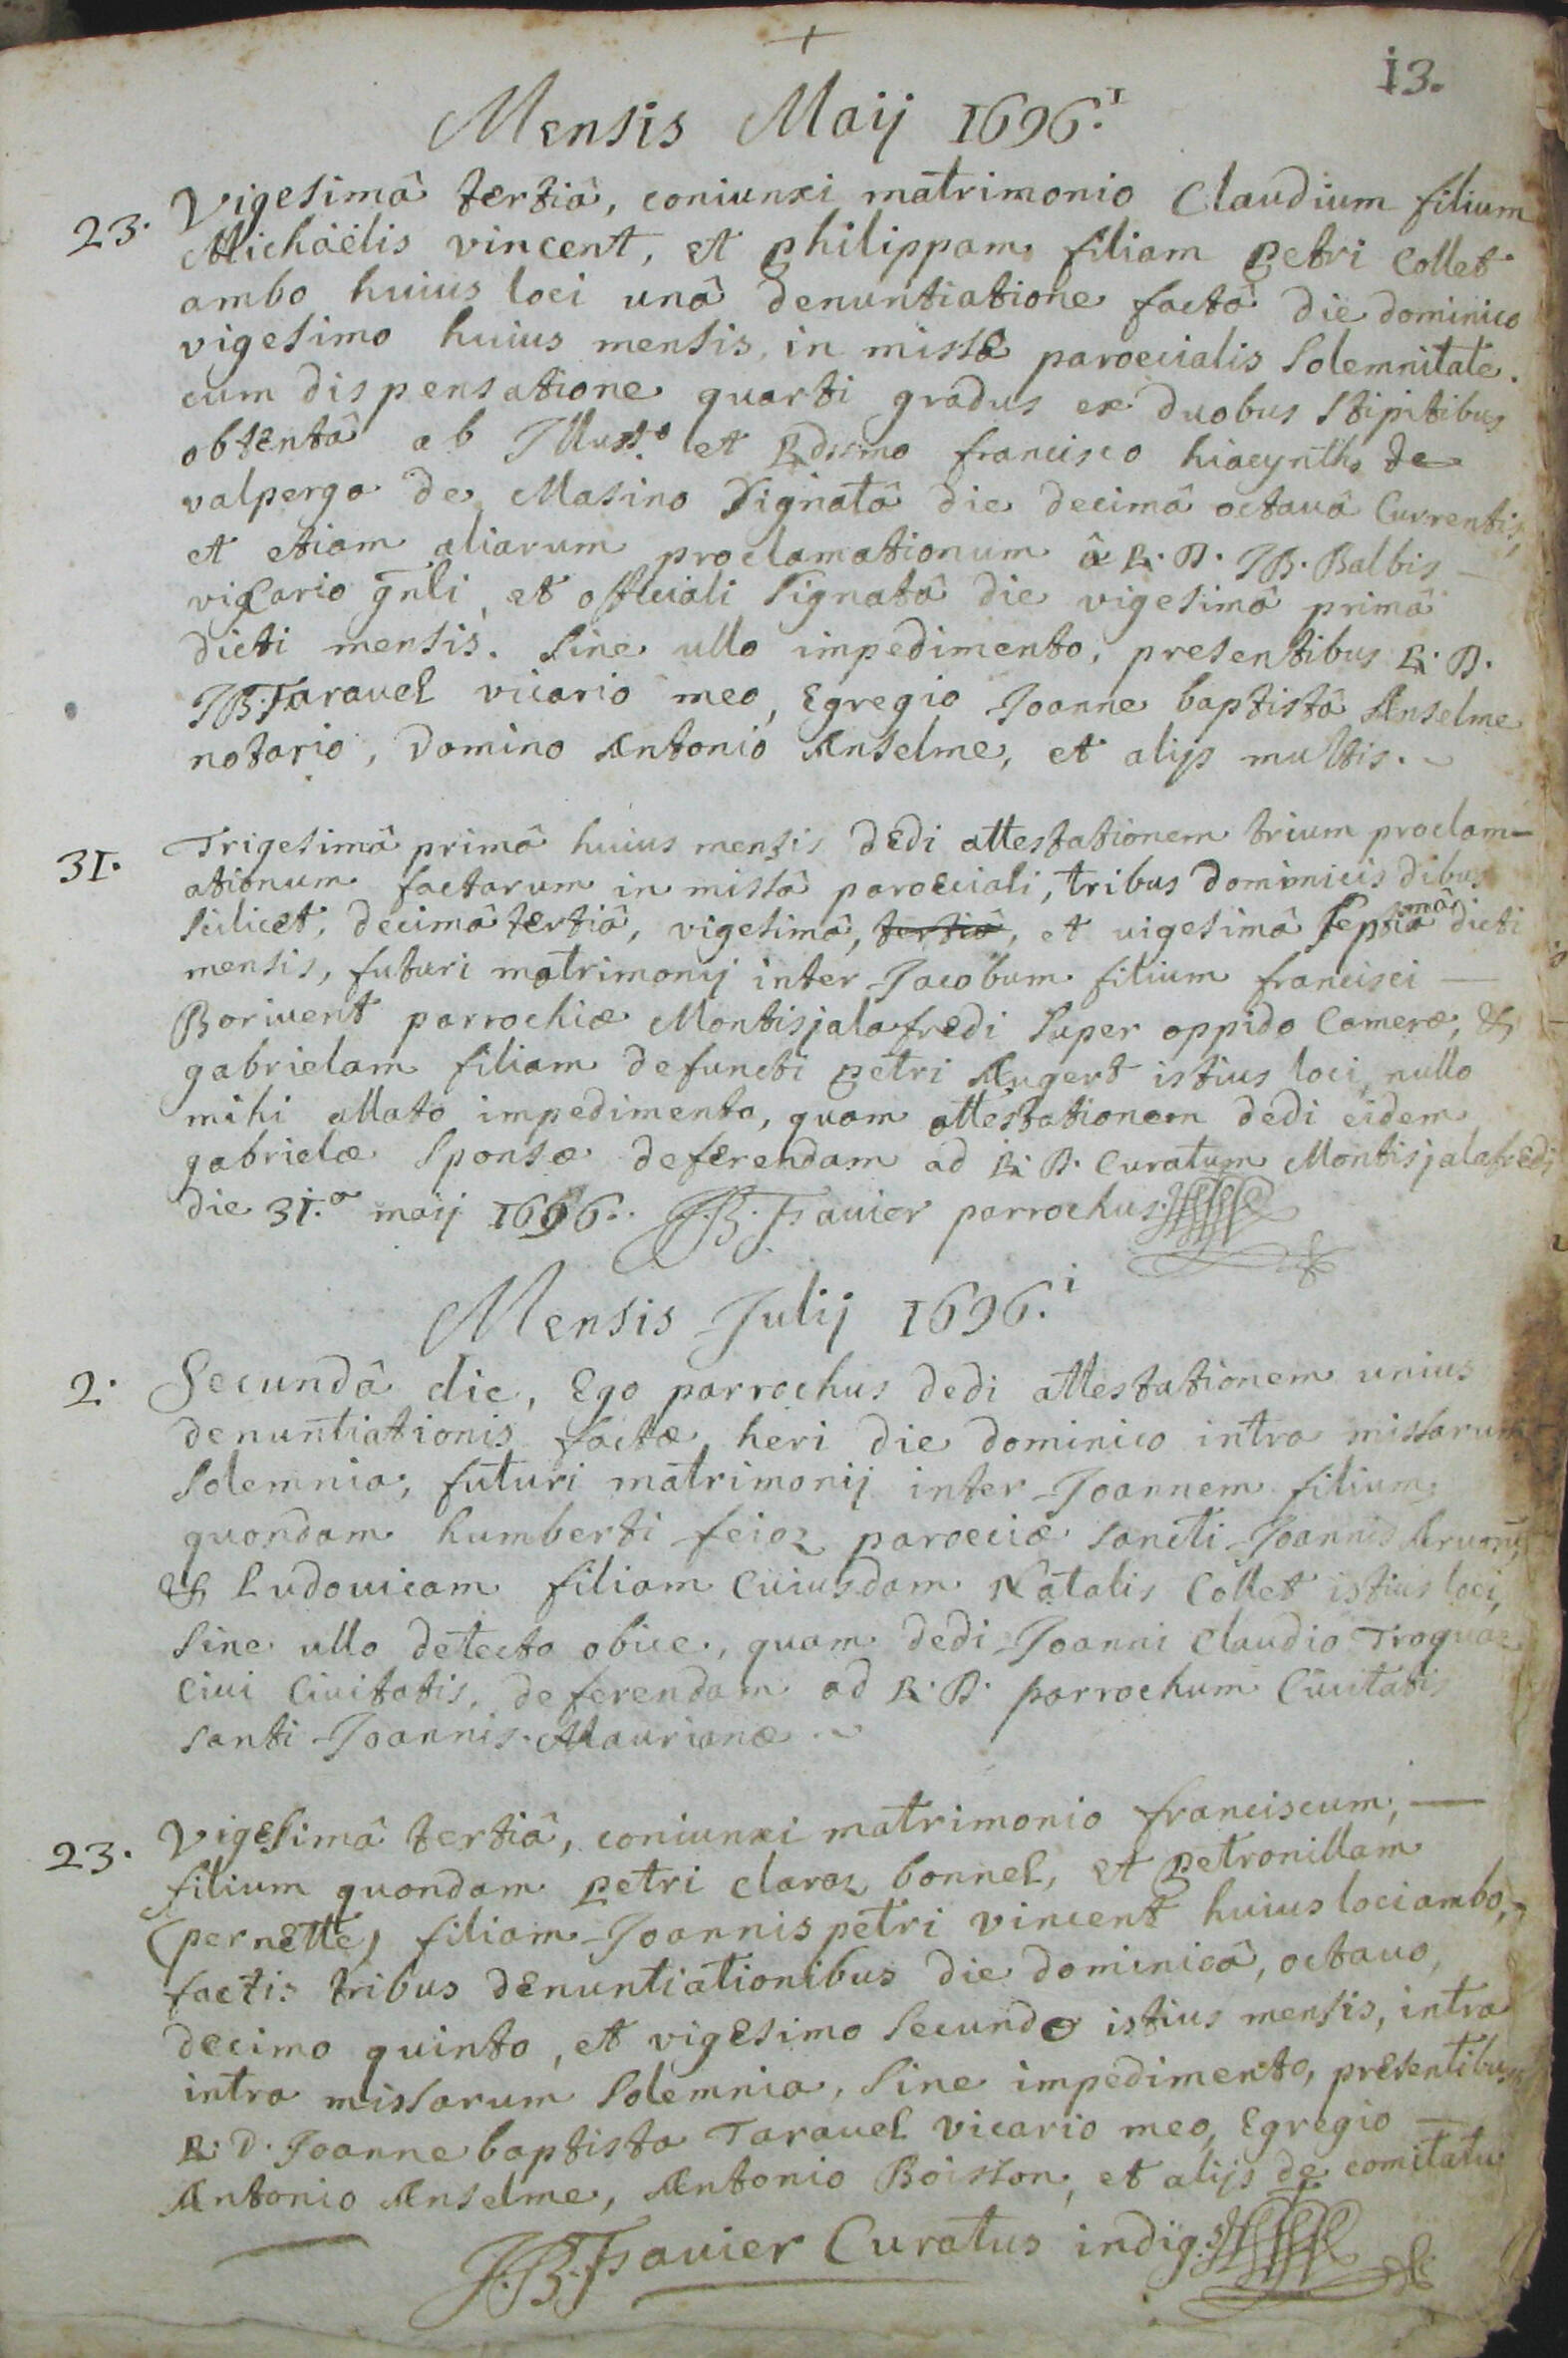 +
13.
Mensis Maij 1696.i
23. Vigesimâ tertiâ, coniunxi matrimonio Claudium filium
Michaëlis vincent, et philippam filiam petri Collet
ambo huius loci unâ denuntiatione factâ die dominico
vigesimo huius mensis, in missæ paroecialis Solemnitate.
cum dispensatione quarti gradus ex duobus Stipitibus
obtentâ ab Illust.o et Rdssmo francisco hiacyntho de
valperga de Masino Signatâ die decimâ octauâ Currentis,
et etiam aliarum proclamationum â R. D. JB. Balbis —
vicario gnli, et officiali Signatâ die vigesimâ primâ
dicti mensis. Sine ullo impedimento, presentibus R. D.
JB. Tarauel vicario meo, Egregio Joanne baptistâ Anselme
notario, Domino Antonio Anselme, et alijs multis.
31. Trigesimâ primâ huius mensis dedi attestationem trium proclam-
ationum factarum in missâ paroeciali, tribus dominicis dibus
Scilicet, decimâ tertiâ, vigesimâ, tertiâ, et uigesimâ Septimâ dicti
mensis, futuri matrimonij inter Jacobum filium francisci —
Boriuent parrochiæ Montisjalafredi Super oppido Cameræ, &
gabrielam filiam defuncti petri Augert istius loci, nullo
mihi allato impedimento, quam attestationem dedi eidem
gabrielæ Sponsæ deferendam ad R. D. Curatum Montisjalafredi
die 31.a maij 1696. J.B. Fauier parrochus
Mensis Julij 1696.i
2. Secundâ die, Ego parrochus dedi attestationem unius
denuntiationis factæ heri die dominico intra missarum
Solemnia, futuri matrimonij inter Joannem filium
quondam humberti feioz paroeciæ sancti Joannis
& Ludouicam filiam Cuiusdam Natalis Collet istius loci,
Sine ullo detecto obice, quam dedi Joanni Claudio Troquaz
Ciui Ciuitatis, deferendam ad R. D. parrochum Ciuitatis
santi Joannis Maurianæ
23. Vigesimâ tertiâ, coniunxi matrimonio franciscum, —
filium quondam petri claraz bonnel, et petronillam
(pernette) filiam Joannis petri vincent huius loci ambo,
factis tribus denuntiationibus die dominicâ, octauo,
decimo quinto, et vigesimo Secundo istius mensis, intra
intra missarum Solemnia, Sine impedimento, presentibus
R. D. Joanne baptista Tarauel vicario meo, Egregio —
Antonio Anselme, Antonio Boisson, et alijs de comitatu
J.B. Fauier Curatus indig.s